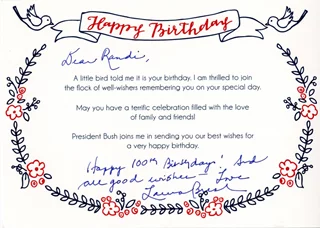 Happy Birthday
Dear Randi,
A little bird told me it is your birthday. I am thrilled to join
the flock of well-wishers remembering you on your special day.
May you have a terrific celebration filled with the love
of family and friends!
President Bush joins me in sending you our best wishes for
a very happy birthday.
Happy 100th Birthday! And
all good wishes. Love
Laura Bush